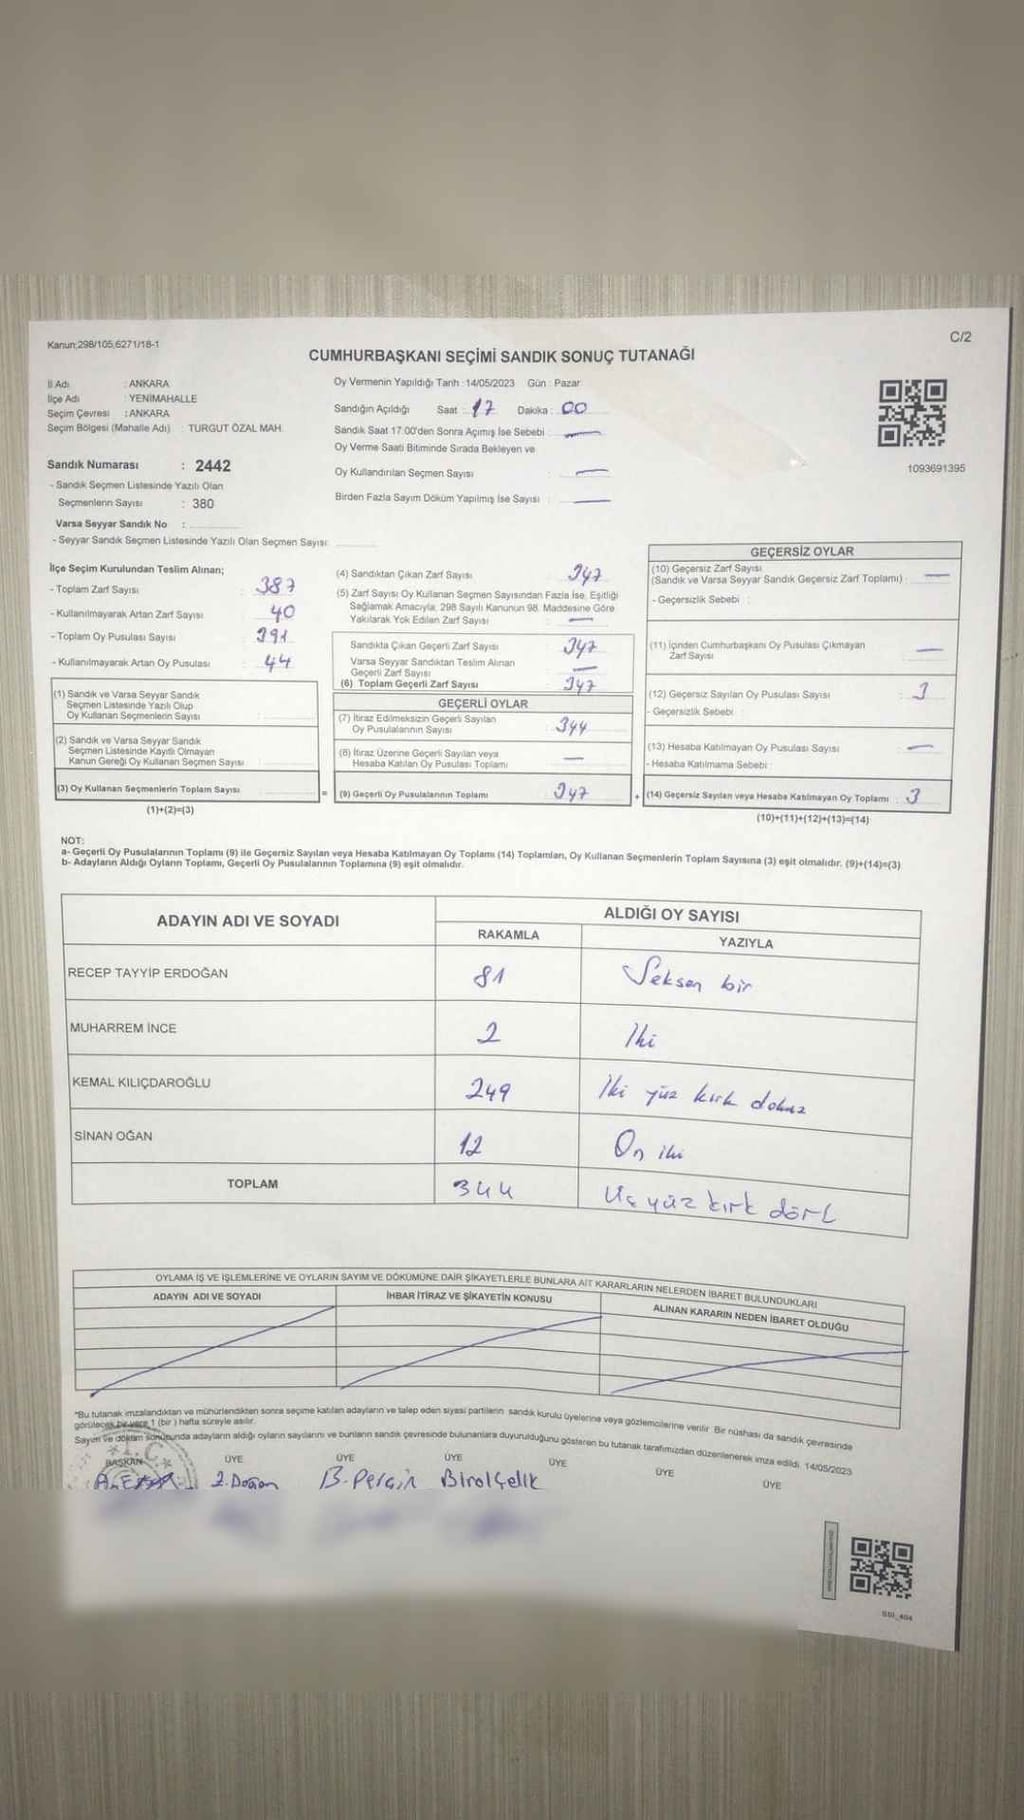 Kanun;298/105,6271/18-1
C/2
CUMHURBAŞKANI SEÇİMİ SANDIK SONUÇ TUTANAĞI
İl Adı : ANKARA
İlçe Adı : YENİMAHALLE
Seçim Çevresi : ANKARA
Seçim Bölgesi (Mahalle Adı) : TURGUT ÖZAL MAH.
Sandık Numarası : 2442
- Sandık Seçmen Listesinde Yazılı Olan
Seçmenlerin Sayısı : 380
Varsa Seyyar Sandık No :
- Seyyar Sandık Seçmen Listesinde Yazılı Olan Seçmen Sayısı:
Oy Vermenin Yapıldığı Tarih :14/05/2023 Gün : Pazar
Sandığın Açıldığı Saat : 17 Dakika : 00
Sandık Saat 17:00'den Sonra Açımış İse Sebebi : —
Oy Verme Saati Bitiminde Sırada Bekleyen ve
Oy Kullandırılan Seçmen Sayısı : —
Birden Fazla Sayım Döküm Yapılmış İse Sayısı : —
1093691395
İlçe Seçim Kurulundan Teslim Alınan;
- Toplam Zarf Sayısı : 387
- Kullanılmayarak Artan Zarf Sayısı : 40
- Toplam Oy Pusulası Sayısı : 391
- Kullanılmayarak Artan Oy Pusulası : 44
(1) Sandık ve Varsa Seyyar Sandık
Seçmen Listesinde Yazılı Olup
Oy Kullanan Seçmenlerin Sayısı :
(2) Sandık ve Varsa Seyyar Sandık
Seçmen Listesinde Kayıtlı Olmayan
Kanun Gereği Oy Kullanan Seçmen Sayısı :
(3) Oy Kullanan Seçmenlerin Toplam Sayısı : =
(1)+(2)=(3)
(4) Sandıktan Çıkan Zarf Sayısı : 347
(5) Zarf Sayısı Oy Kullanan Seçmen Sayısından Fazla İse, Eşitliği
Sağlamak Amacıyla, 298 Sayılı Kanunun 98. Maddesine Göre
Yakılarak Yok Edilen Zarf Sayısı : —
Sandıkta Çıkan Geçerli Zarf Sayısı : 347
Varsa Seyyar Sandıktan Teslim Alınan
Geçerli Zarf Sayısı : —
(6) Toplam Geçerli Zarf Sayısı : 347
GEÇERLİ OYLAR
(7) İtiraz Edilmeksizin Geçerli Sayılan
Oy Pusulalarının Sayısı : 344
(8) İtiraz Üzerine Geçerli Sayılan veya
Hesaba Katılan Oy Pusulası Toplamı : —
(9) Geçerli Oy Pusulalarının Toplamı : 347 +
GEÇERSİZ OYLAR
(10) Geçersiz Zarf Sayısı
(Sandık ve Varsa Seyyar Sandık Geçersiz Zarf Toplamı) : —
- Geçersizlik Sebebi :
(11) İçinden Cumhurbaşkanı Oy Pusulası Çıkmayan
Zarf Sayısı : —
(12) Geçersiz Sayılan Oy Pusulası Sayısı : 3
- Geçersizlik Sebebi :
(13) Hesaba Katılmayan Oy Pusulası Sayısı : —
- Hesaba Katılmama Sebebi :
(14) Geçersiz Sayılan veya Hesaba Katılmayan Oy Toplamı : 3
(10)+(11)+(12)+(13)=(14)
NOT:
a- Geçerli Oy Pusulalarının Toplamı (9) ile Geçersiz Sayılan veya Hesaba Katılmayan Oy Toplamı (14) Toplamları, Oy Kullanan Seçmenlerin Toplam Sayısına (3) eşit olmalıdır. (9)+(14)=(3)
b- Adayların Aldığı Oyların Toplamı, Geçerli Oy Pusulalarının Toplamına (9) eşit olmalıdır.
ADAYIN ADI VE SOYADI
ALDIĞI OY SAYISI
RAKAMLA YAZIYLA
RECEP TAYYİP ERDOĞAN 81 Seksen bir
MUHARREM İNCE 2 İki
KEMAL KILIÇDAROĞLU 249 İki yüz kırk dokuz
SİNAN OĞAN 12 On iki
TOPLAM 344 Üç yüz kırk dört
OYLAMA İŞ VE İŞLEMLERİNE VE OYLARIN SAYIM VE DÖKÜMÜNE DAİR ŞİKAYETLERLE BUNLARA AİT KARARLARIN NELERDEN İBARET BULUNDUKLARI
ADAYIN ADI VE SOYADI İHBAR İTİRAZ VE ŞİKAYETİN KONUSU ALINAN KARARIN NEDEN İBARET OLDUĞU
*Bu tutanak imzalandıktan ve mühürlendikten sonra seçime katılan adayların ve talep eden siyasi partilerin sandık kurulu üyelerine veya gözlemcilerine verilir. Bir nüshası da sandık çevresinde
görülecek bir yere 1 (bir ) hafta süreyle asılır.
Sayım ve döküm sonucunda adayların aldığı oyların sayılarını ve bunların sandık çevresinde bulunanlara duyurulduğunu gösteren bu tutanak tarafımızdan düzenlenerek imza edildi. 14/05/2023
T.C.
BAŞKAN ÜYE ÜYE ÜYE ÜYE ÜYE ÜYE
B. Perçin Birol Çelik